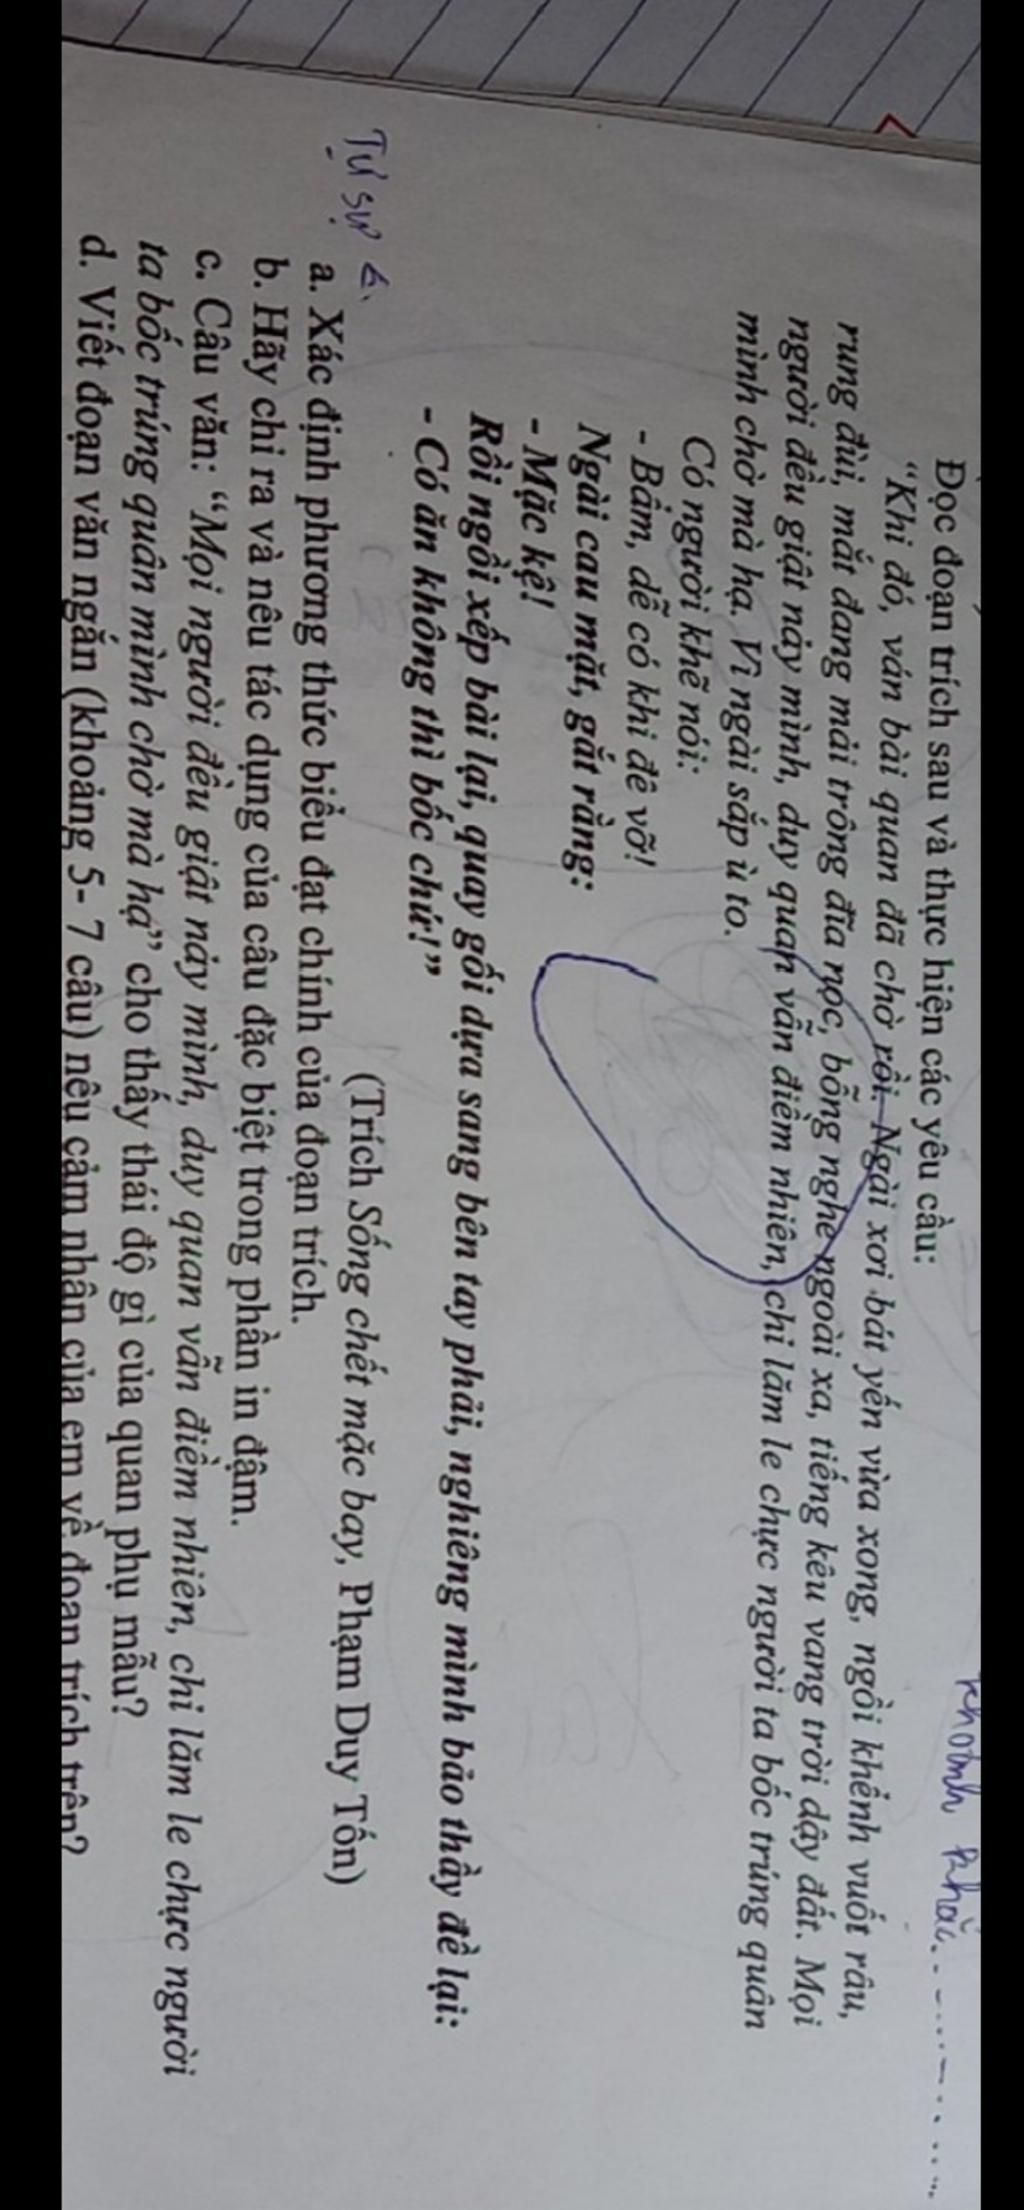 khoảnh khắc
Đọc đoạn trích sau và thực hiện các yêu cầu:
“Khi đó, ván bài quan đã chờ rồi. Ngài xơi bát yến vừa xong, ngồi khểnh vuốt râu,
rung đùi, mắt đang mải trông đĩa nọc, bỗng nghe ngoài xa, tiếng kêu vang trời dậy đất. Mọi
người đều giật nảy mình, duy quan vẫn điềm nhiên, chỉ lăm le chực người ta bốc trúng quân
mình chờ mà hạ. Vì ngài sắp ù to.
Có người khẽ nói:
- Bẩm, dễ có khi đê vỡ!
Ngài cau mặt, gắt rằng:
- Mặc kệ!
Rồi ngồi xếp bài lại, quay gối dựa sang bên tay phải, nghiêng mình bảo thầy đề lại:
- Có ăn không thì bốc chứ!”
(Trích Sống chết mặc bay, Phạm Duy Tốn)
Tự sự
a. Xác định phương thức biểu đạt chính của đoạn trích.
b. Hãy chỉ ra và nêu tác dụng của câu đặc biệt trong phần in đậm.
c. Câu văn: “Mọi người đều giật nảy mình, duy quan vẫn điềm nhiên, chỉ lăm le chực người
ta bốc trúng quân mình chờ mà hạ” cho thấy thái độ gì của quan phụ mẫu?
d. Viết đoạn văn ngắn (khoảng 5- 7 câu) nêu cảm nhận của em về đoạn trích trên?